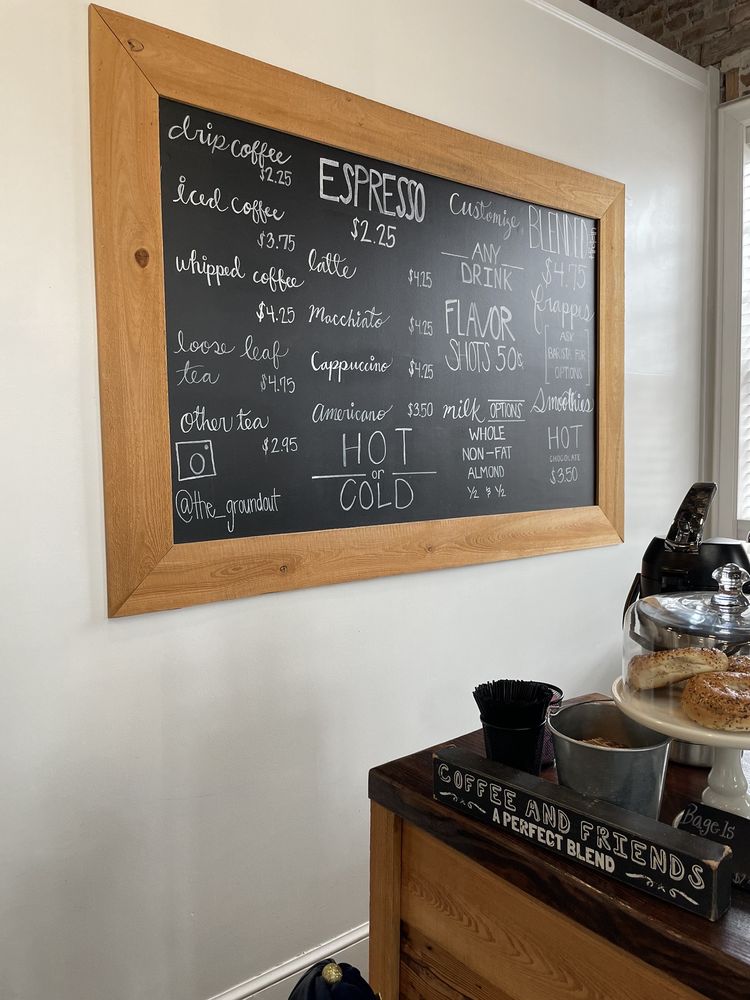 drip coffee
$2.25
iced coffee
$3.75
whipped coffee
$4.25
loose leaf
tea $4.75
other tea
$2.95
@the_groundout
ESPRESSO
$2.25
latte $4.25
Macchiato $4.25
Cappuccino $4.25
Americano $3.50
HOT
or
COLD
Customize
ANY
DRINK
FLAVOR
SHOTS 50¢
milk OPTIONS
WHOLE
NON-FAT
ALMOND
½ & ½
BLENDED
$4.75
frappes
ASK
BARISTA FOR
OPTIONS
Smoothies
HOT
CHOCOLATE
$3.50
COFFEE AND FRIENDS
A PERFECT BLEND
Bagels